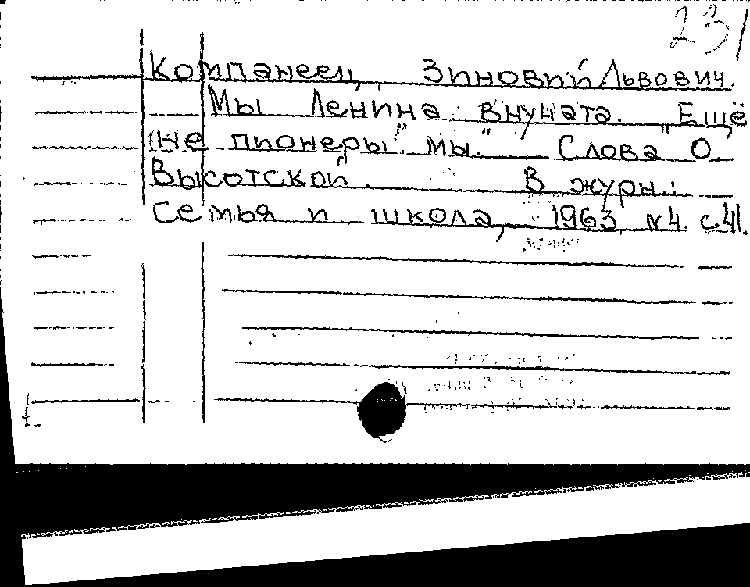 231
Компанеец, Зиновий Львович.
Мы Ленина внучата. "Ещё
не пионеры мы." Слова О.
Высотской. В журн.:
Семья и школа, 1963, №4. с.41.